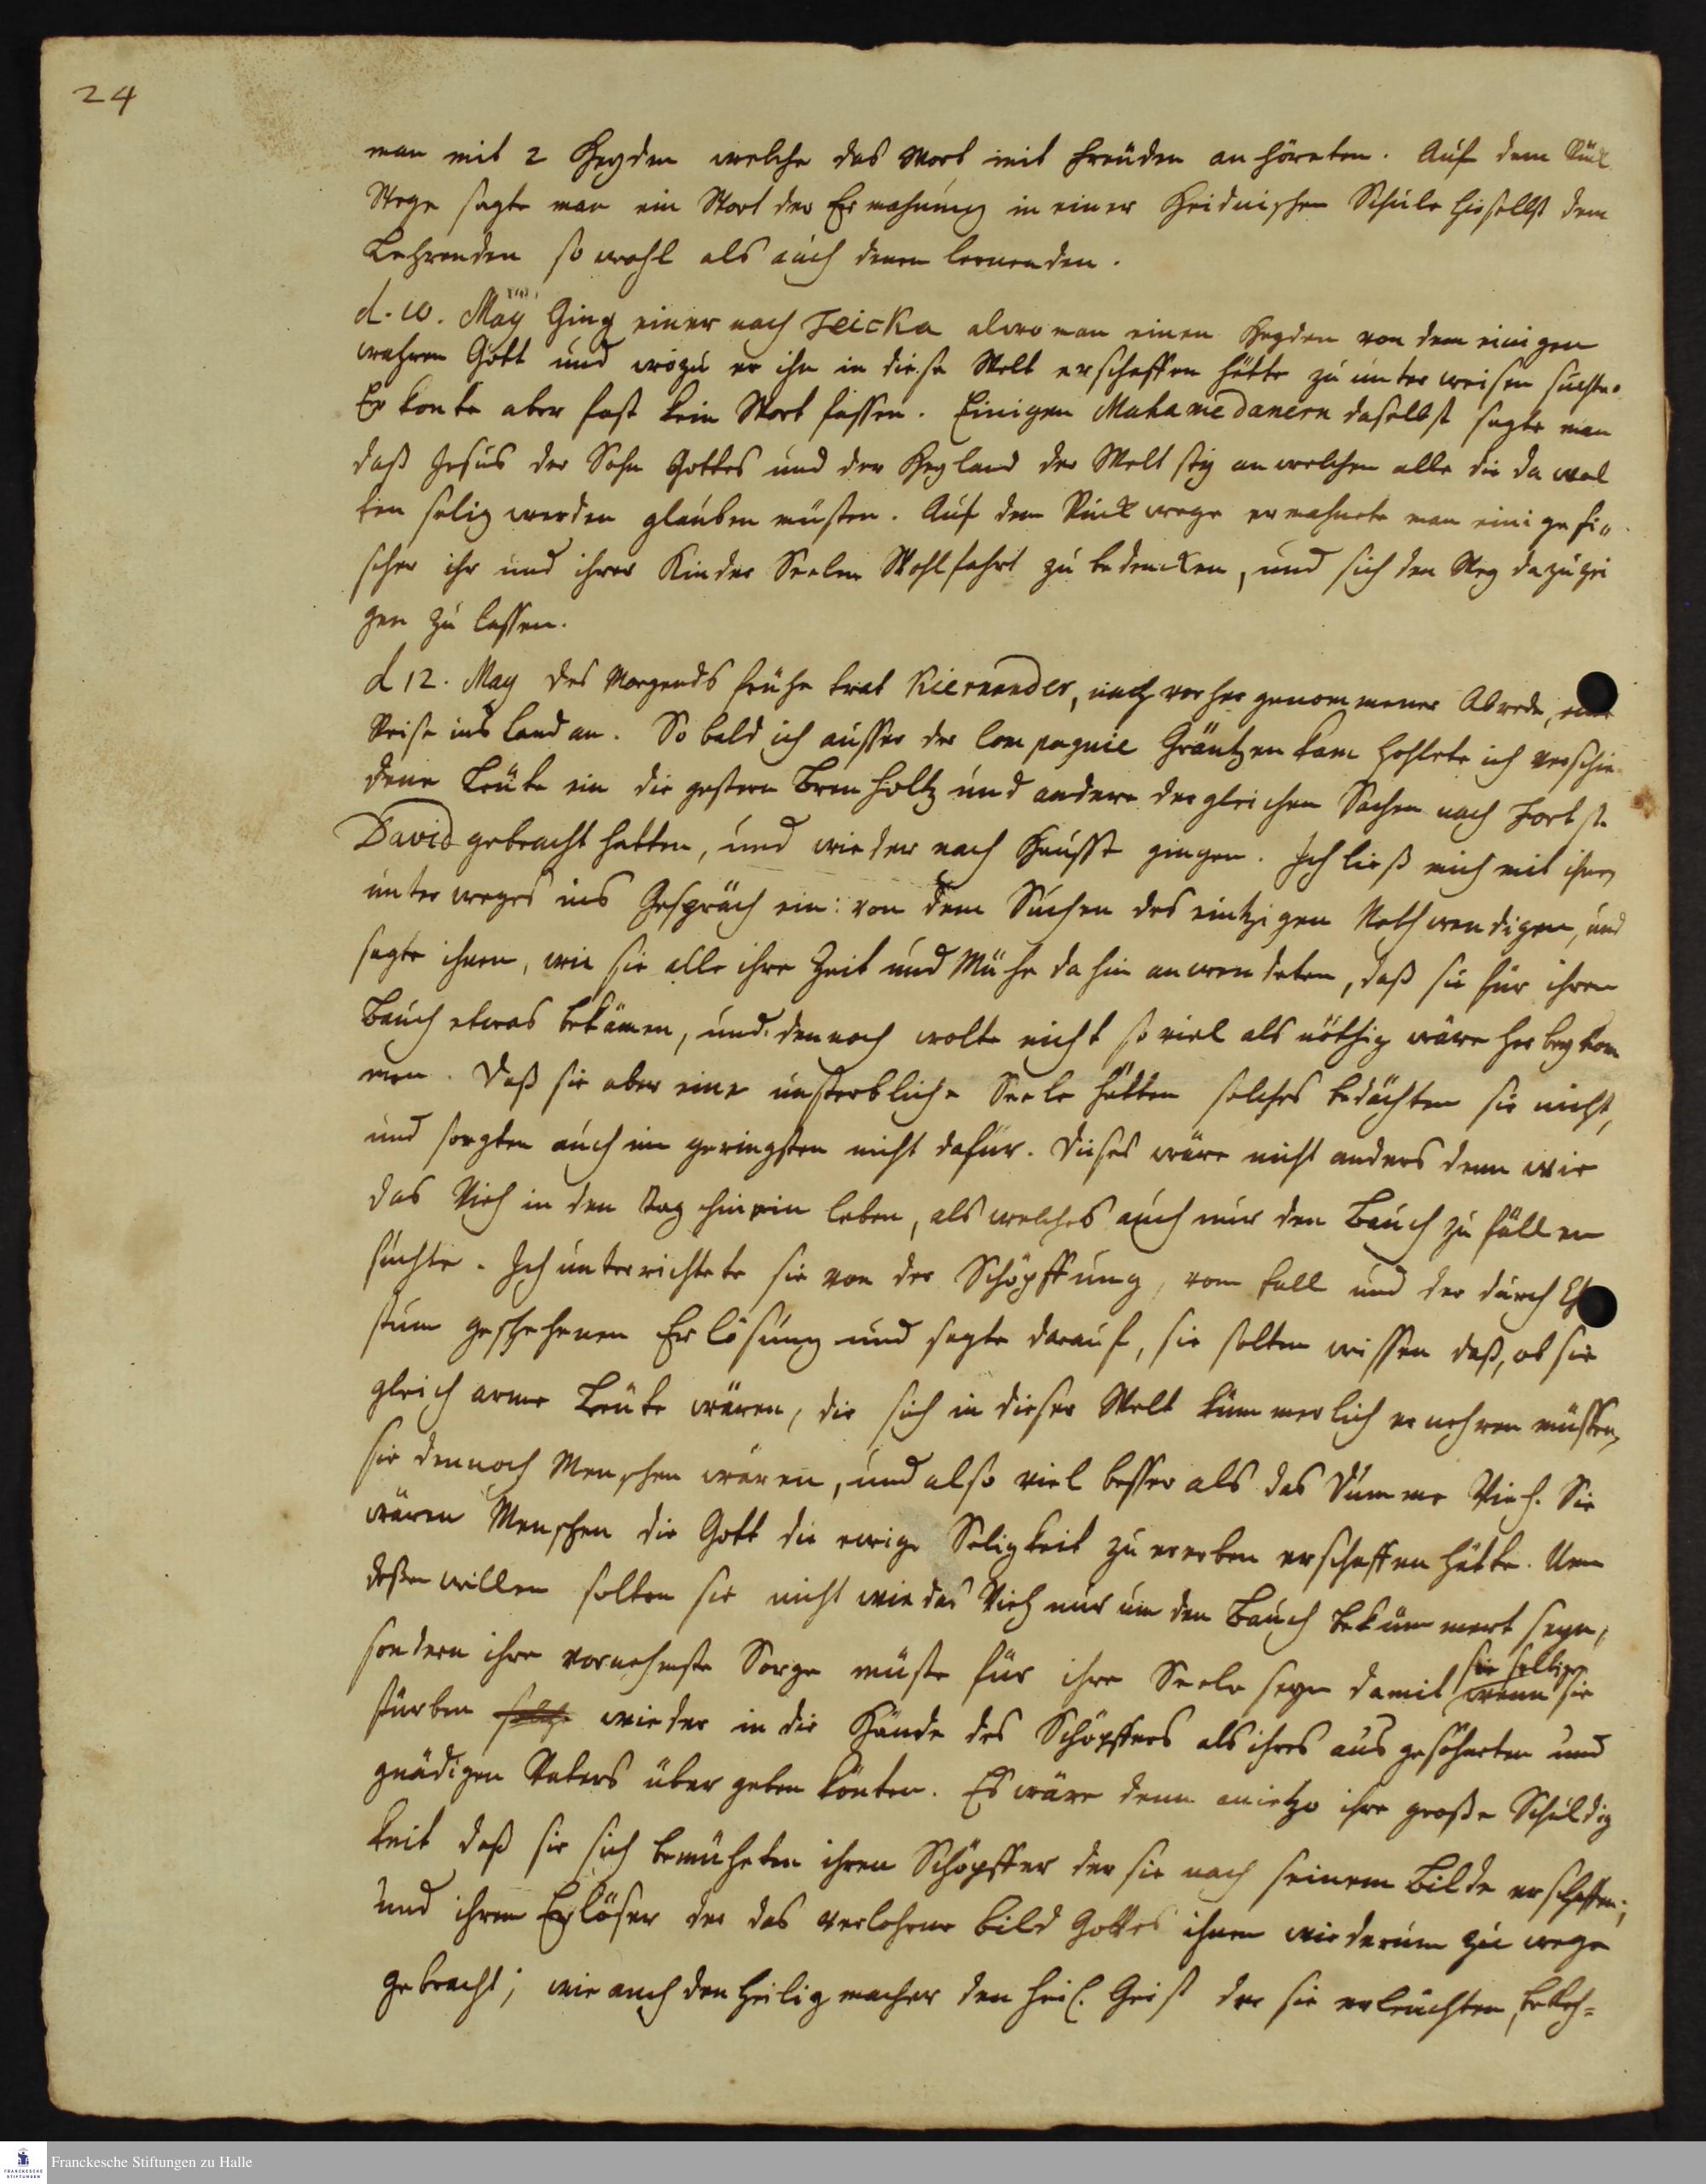 24
man mit 2 Heyden welche das Wort mit Freuden an höreten. Auf dem Rück
Wege sagte man ein Wort der Ermahnung in einer Heidnischen Schule hieselbst dem
Lehrenden so wohl als auch denen lernenden.
d. 10. May Ging einer nach Teicka alwo man einen Heyden von dem einigen
wahren Gott und wozu er ihn in diese Welt erschaffen hätte zu unterweisen suchte.
Er konte aber fast kein Wort fassen. Einigen Mahamedanern daselbst sagte man
daß Jesus der Sohn Gottes und der Heyland der Welt sey an welchen alle die da wol
ten selig werden glauben müsten. Auf dem Rückwege ermahnete man einige Fi„
scher ihr und ihrer Kinder Seelen Wohlfahrt zu bedencken, und sich den Weg dazu zei
gen zu lassen.
d 12. May des Morgends frühe trat Kiernander, nach vorher genommener Abrede, eine
Reise ins Land an. So bald ich ausser der Compagnie Gräntzen kam hohlete ich verschie
dene Leute ein die gestern Brenholtz und andere dergleichen Sachen nach Fort St.
David gebracht hatten, und wieder nach Hausse gingen. Ich ließ mich mit ihnen
unterweges ins Gespräch ein: von dem Suchen des eintzigen Nothwendigen, und
sagte ihnen, wie sie alle ihre Zeit und Mühe dahin anwendeten, daß sie für ihren
Bauch etwas bekämen, und dennoch wolte nicht so viel als nöthig wäre herbey kom
men. Daß sie aber eine unsterbliche Seele hätten solches bedächten sie nicht,
und sorgten auch im geringsten nicht dafür. Dieses wäre nicht anders denn wie
das Vieh in den Tag hinein leben, als welches auch nur den Bauch zu füllen
suchte. Ich unterrichtete sie von der Schöpffung, vom Fall und der durch Ch
stum geschehenen Erlösung und sagte darauf, sie solten wissen daß, ob sie
gleich arme Leute wären, die sich in dieser Welt kümmerlich ernehren müssen,
sie dennoch Menschen wären, und also viel besser als das Dumme Vieh. Sie
wären Menschen die Gott die ewige Seligkeit zu ererben erschaffen hätte. Um
deßen willen solten sie nicht wie das Vieh nur um den Bauch bekümmert seyn,
sondern ihre vornehmste Sorge müste für ihre Seele seyn damit sie selbige wenn sie
stürben solche wieder in die Hände des Schöpffers als ihres ausgesöhneten und
gnädigen Vaters übergeben könten. Es wäre denn anietzo ihre große Schuldig
keit daß sie sich bemüheten ihren Schöpffer der sie nach seinem Bilde erschaffen;
und ihren Erlöser der das verlohrne Bild Gottes ihnen wiederum zu wege
gebracht; wie auch den Heiligmacher den Heil. Geist der sie erleuchten, bekeh=
Franckesche Stiftungen zu Halle